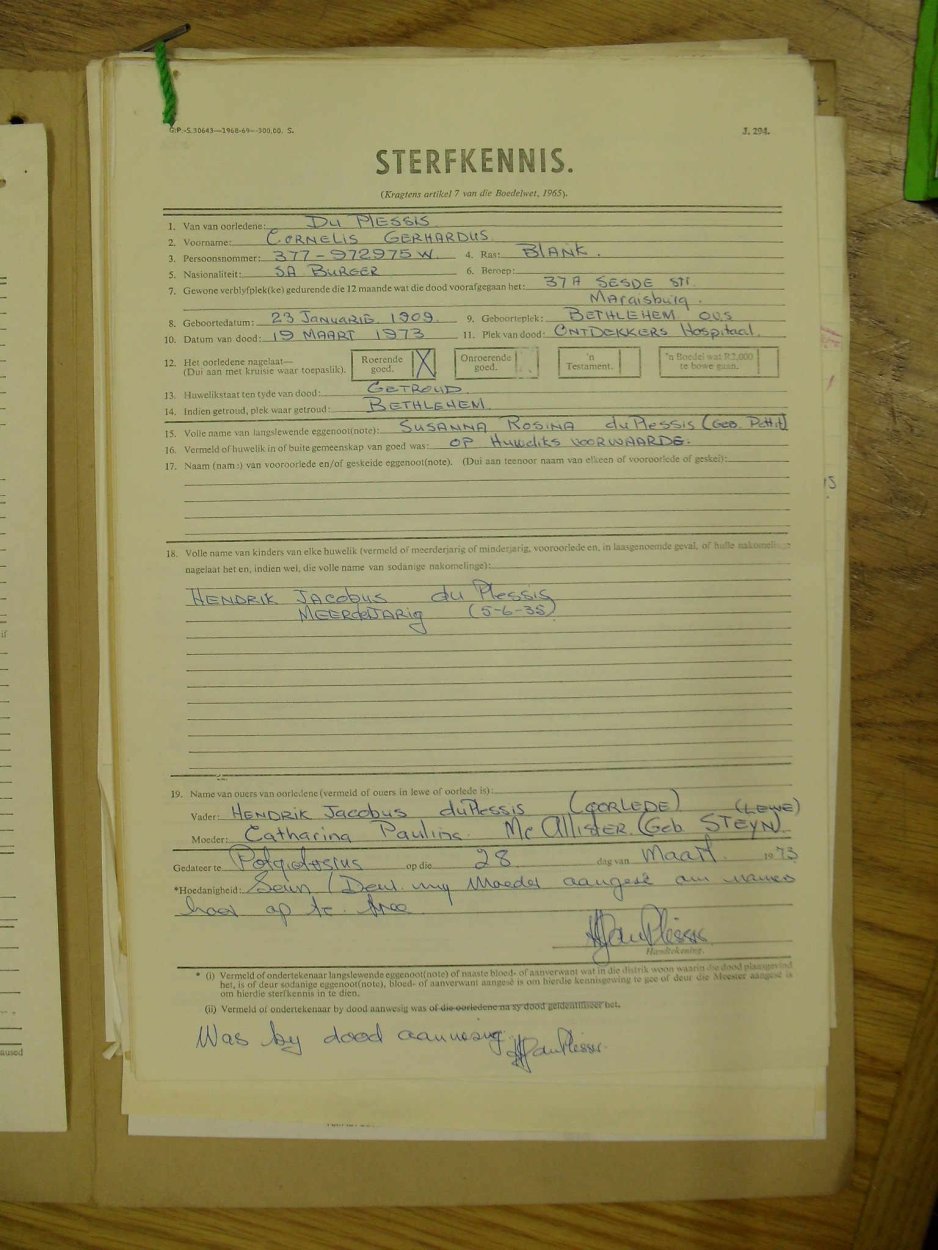 G.P.-S.30643—1968-69—300.00. S. J. 294.
STERFKENNIS.
(Kragtens artikel 7 van die Boedelwet, 1965).
1. Van van oorledene: DU PLESSIS
2. Voorname: CORNELIS GERHARDUS
3. Persoonsnommer: 377-972975 W. 4. Ras: BLANK.
5. Nasionaliteit: SA BURGER 6. Beroep:
7. Gewone verblyfplek(ke) gedurende die 12 maande wat die dood voorafgegaan het: 37A SESDE STR
Maraisburg.
8. Geboortedatum: 23 JANUARIE 1909. 9. Geboorteplek: BETHLEHEM OVS
10. Datum van dood: 19 MAART 1973 11. Plek van dood: ONTDEKKERS Hospitaal.
12. Het oorledene nagelaat— (Dui aan met kruisie waar toepaslik). Roerende goed. X Onroerende goed. 'n Testament. 'n Boedel wat R2,000 te bowe gaan.
13. Huwelikstaat ten tyde van dood: GETROUD
14. Indien getroud, plek waar getroud: BETHLEHEM.
15. Volle name van langslewende eggenoot(note): SUSANNA ROSINA du Plessis (Geb.
16. Vermeld of huwelik in of buite gemeenskap van goed was: OP Huweliks VOORWAARDE.
17. Naam (name) van vooroorlede en/of geskeide eggenoot(note). (Dui aan teenoor naam van elkeen of vooroorlede of geskei):
18. Volle name van kinders van elke huwelik (vermeld of meerderjarig of minderjarig, vooroorlede en, in laasgenoemde geval, of hulle nakomelinge
nagelaat het en, indien wel, die volle name van sodanige nakomelinge):
HENDRIK JACOBUS du Plessis
MEERDERJARIG (5-6-35)
19. Name van ouers van oorledene (vermeld of ouers in lewe of oorlede is):
Vader: HENDRIK JACOBUS duPlessis (OORLEDE)
(LEWE)
Moeder: Catharina Paulina Mc Allister (Geb STEYN).
Gedateer te op die 28 dag van Maart 1973
*Hoedanigheid: Seun (Deur my Moeder aangesê om namens
haar op te tree
HJ du Plessis
Handtekening.
* (i) Vermeld of ondertekenaar langslewende eggenoot(note) of naaste bloed- of aanverwant wat in die distrik woon waarin die dood plaasgevind
het, is of deur sodanige eggenoot(note), bloed- of aanverwant aangesê is om hierdie kennisgewing te gee of deur die Meester aangesê is
om hierdie sterfkennis in te dien.
(ii) Vermeld of ondertekenaar by dood aanwesig was of die oorledene na sy dood geïdentifiseer het.
Was by dood aanwesig. HJ du Plessis